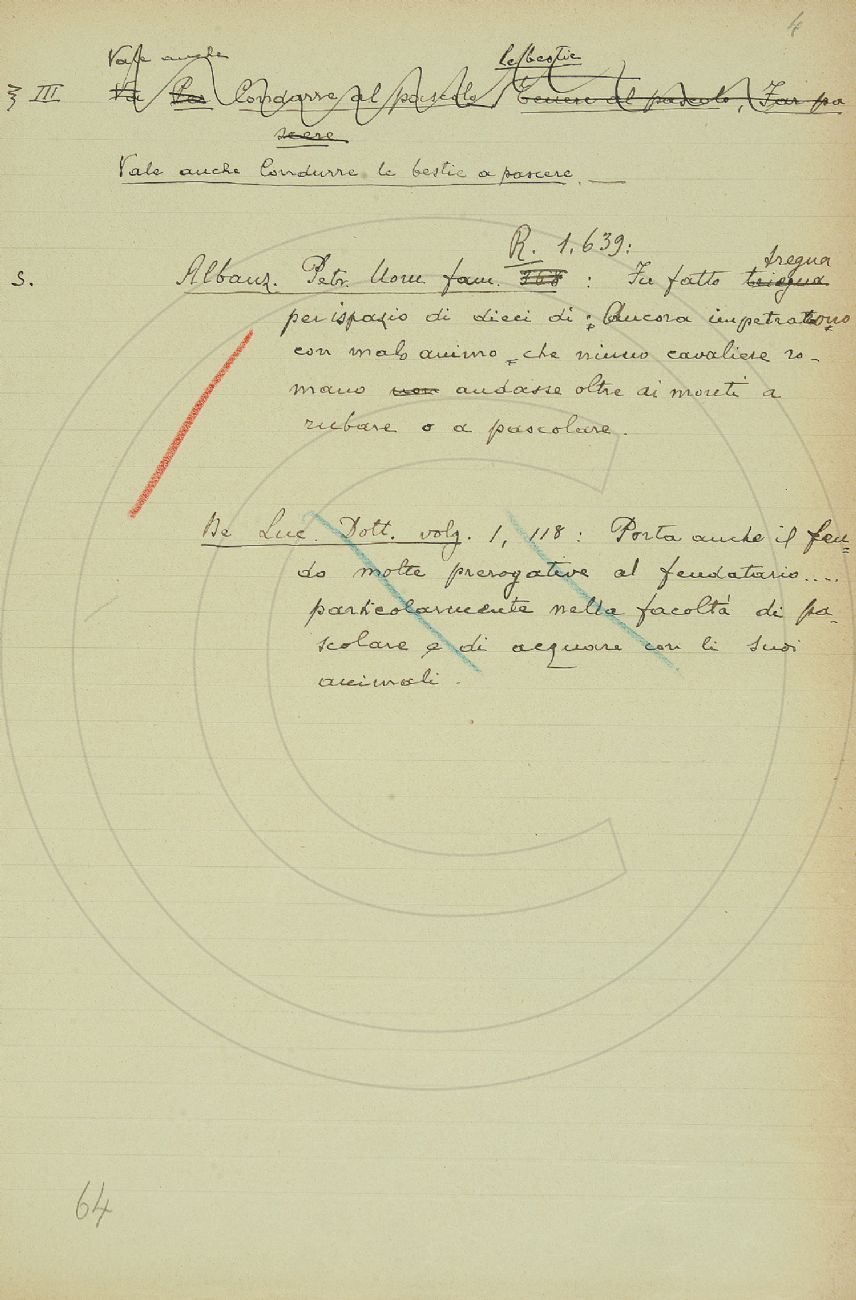 4
Vale anche le bestie
§ III Va Per Condurre al pascolo Tenere al pascolo, Far pa
scere
Vale anche Condurre le bestie a pascere. —
R. 1, 639:
tregua
S. Albanz. Petr. Uom. fam. 368 : Fu fatto triegua
per ispazio di dieci dì: Ancora impetratono
con malo animo, che niuno cavaliere ro-
mano non andasse oltre ai monti a
rubare o a pascolare.
De Luc. Dott. volg. 1, 118 : Porta anche il feu-
do molte prerogative al feudatario....
particolarmente nella facoltà di pa-
scolare e di acquare con li suoi
animali.
64